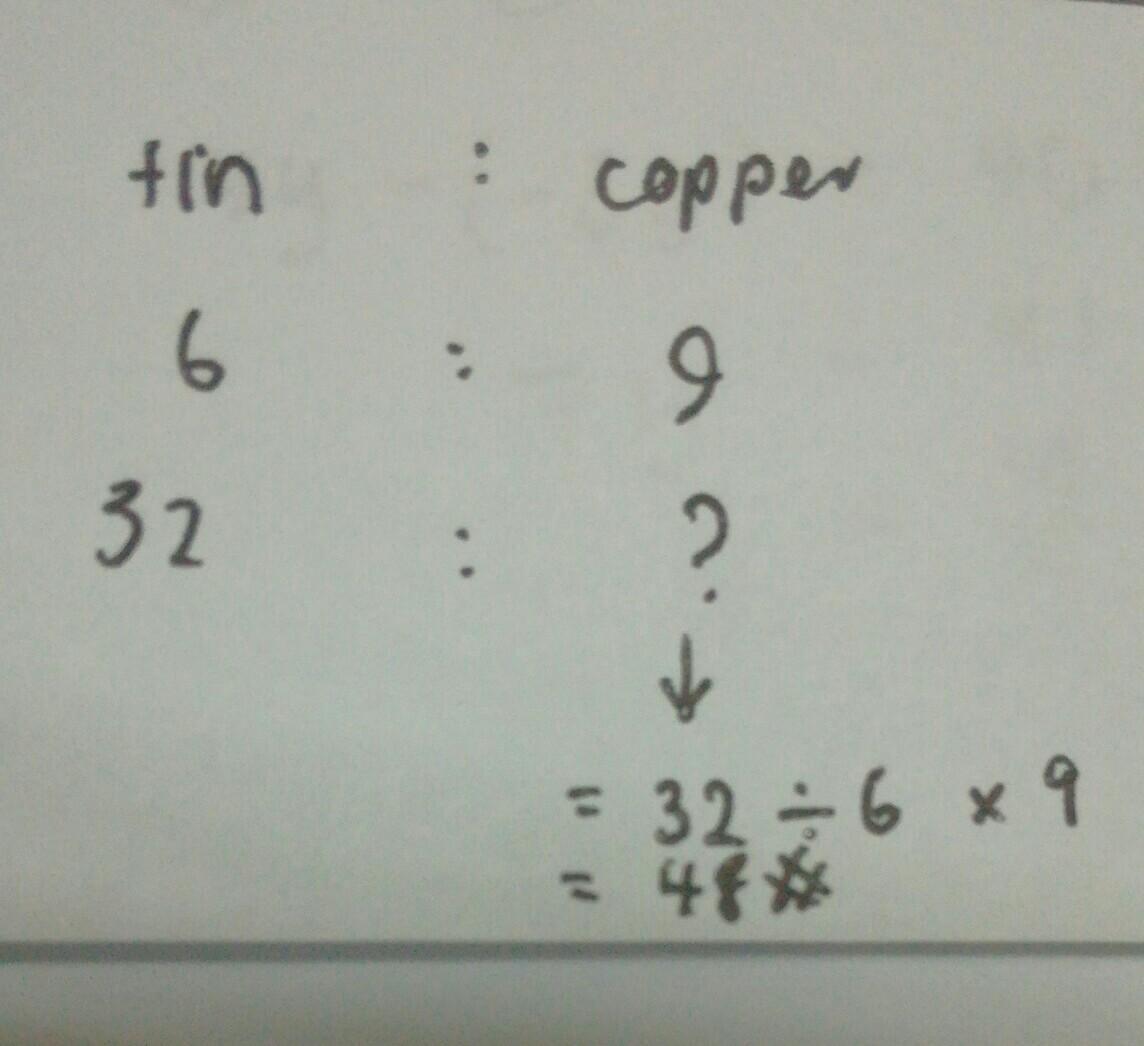 tin : copper
6 : 9
32 : ?
↓
= 32 ÷ 6 × 9
= 48